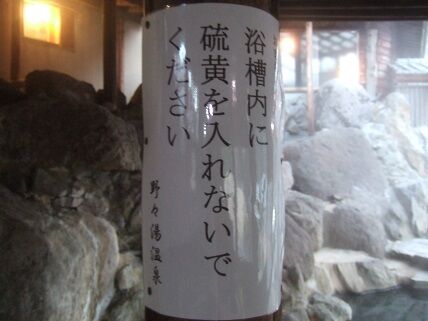 浴槽内に
硫黄を入れないで
ください
野々湯温泉